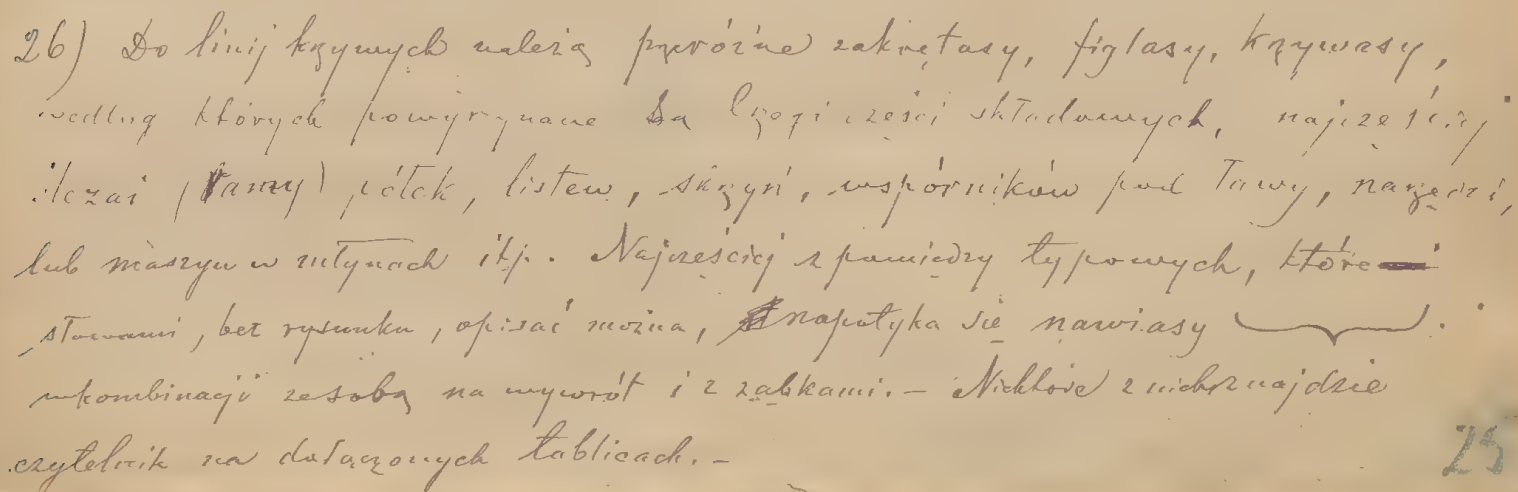 26) Do linij krzywych należą przeróżne zakrętasy, figlasy, krzywasy,
według których powyrzynane są brzegi części składowych, najczęściej
(ramy) półek, listew, skrzyń, wsporników pod ławy, narzędzi,
lub maszyn w młynach itp. Najczęściej z pomiędzy typowych, które
słowami, bez rysunku, opisać można, napotyka się nawiasy
w kombinacji ze sobą na wywrót i z ząbkami. – Niektóre z nich znajdzie
czytelnik na dołączonych tablicach. –
25